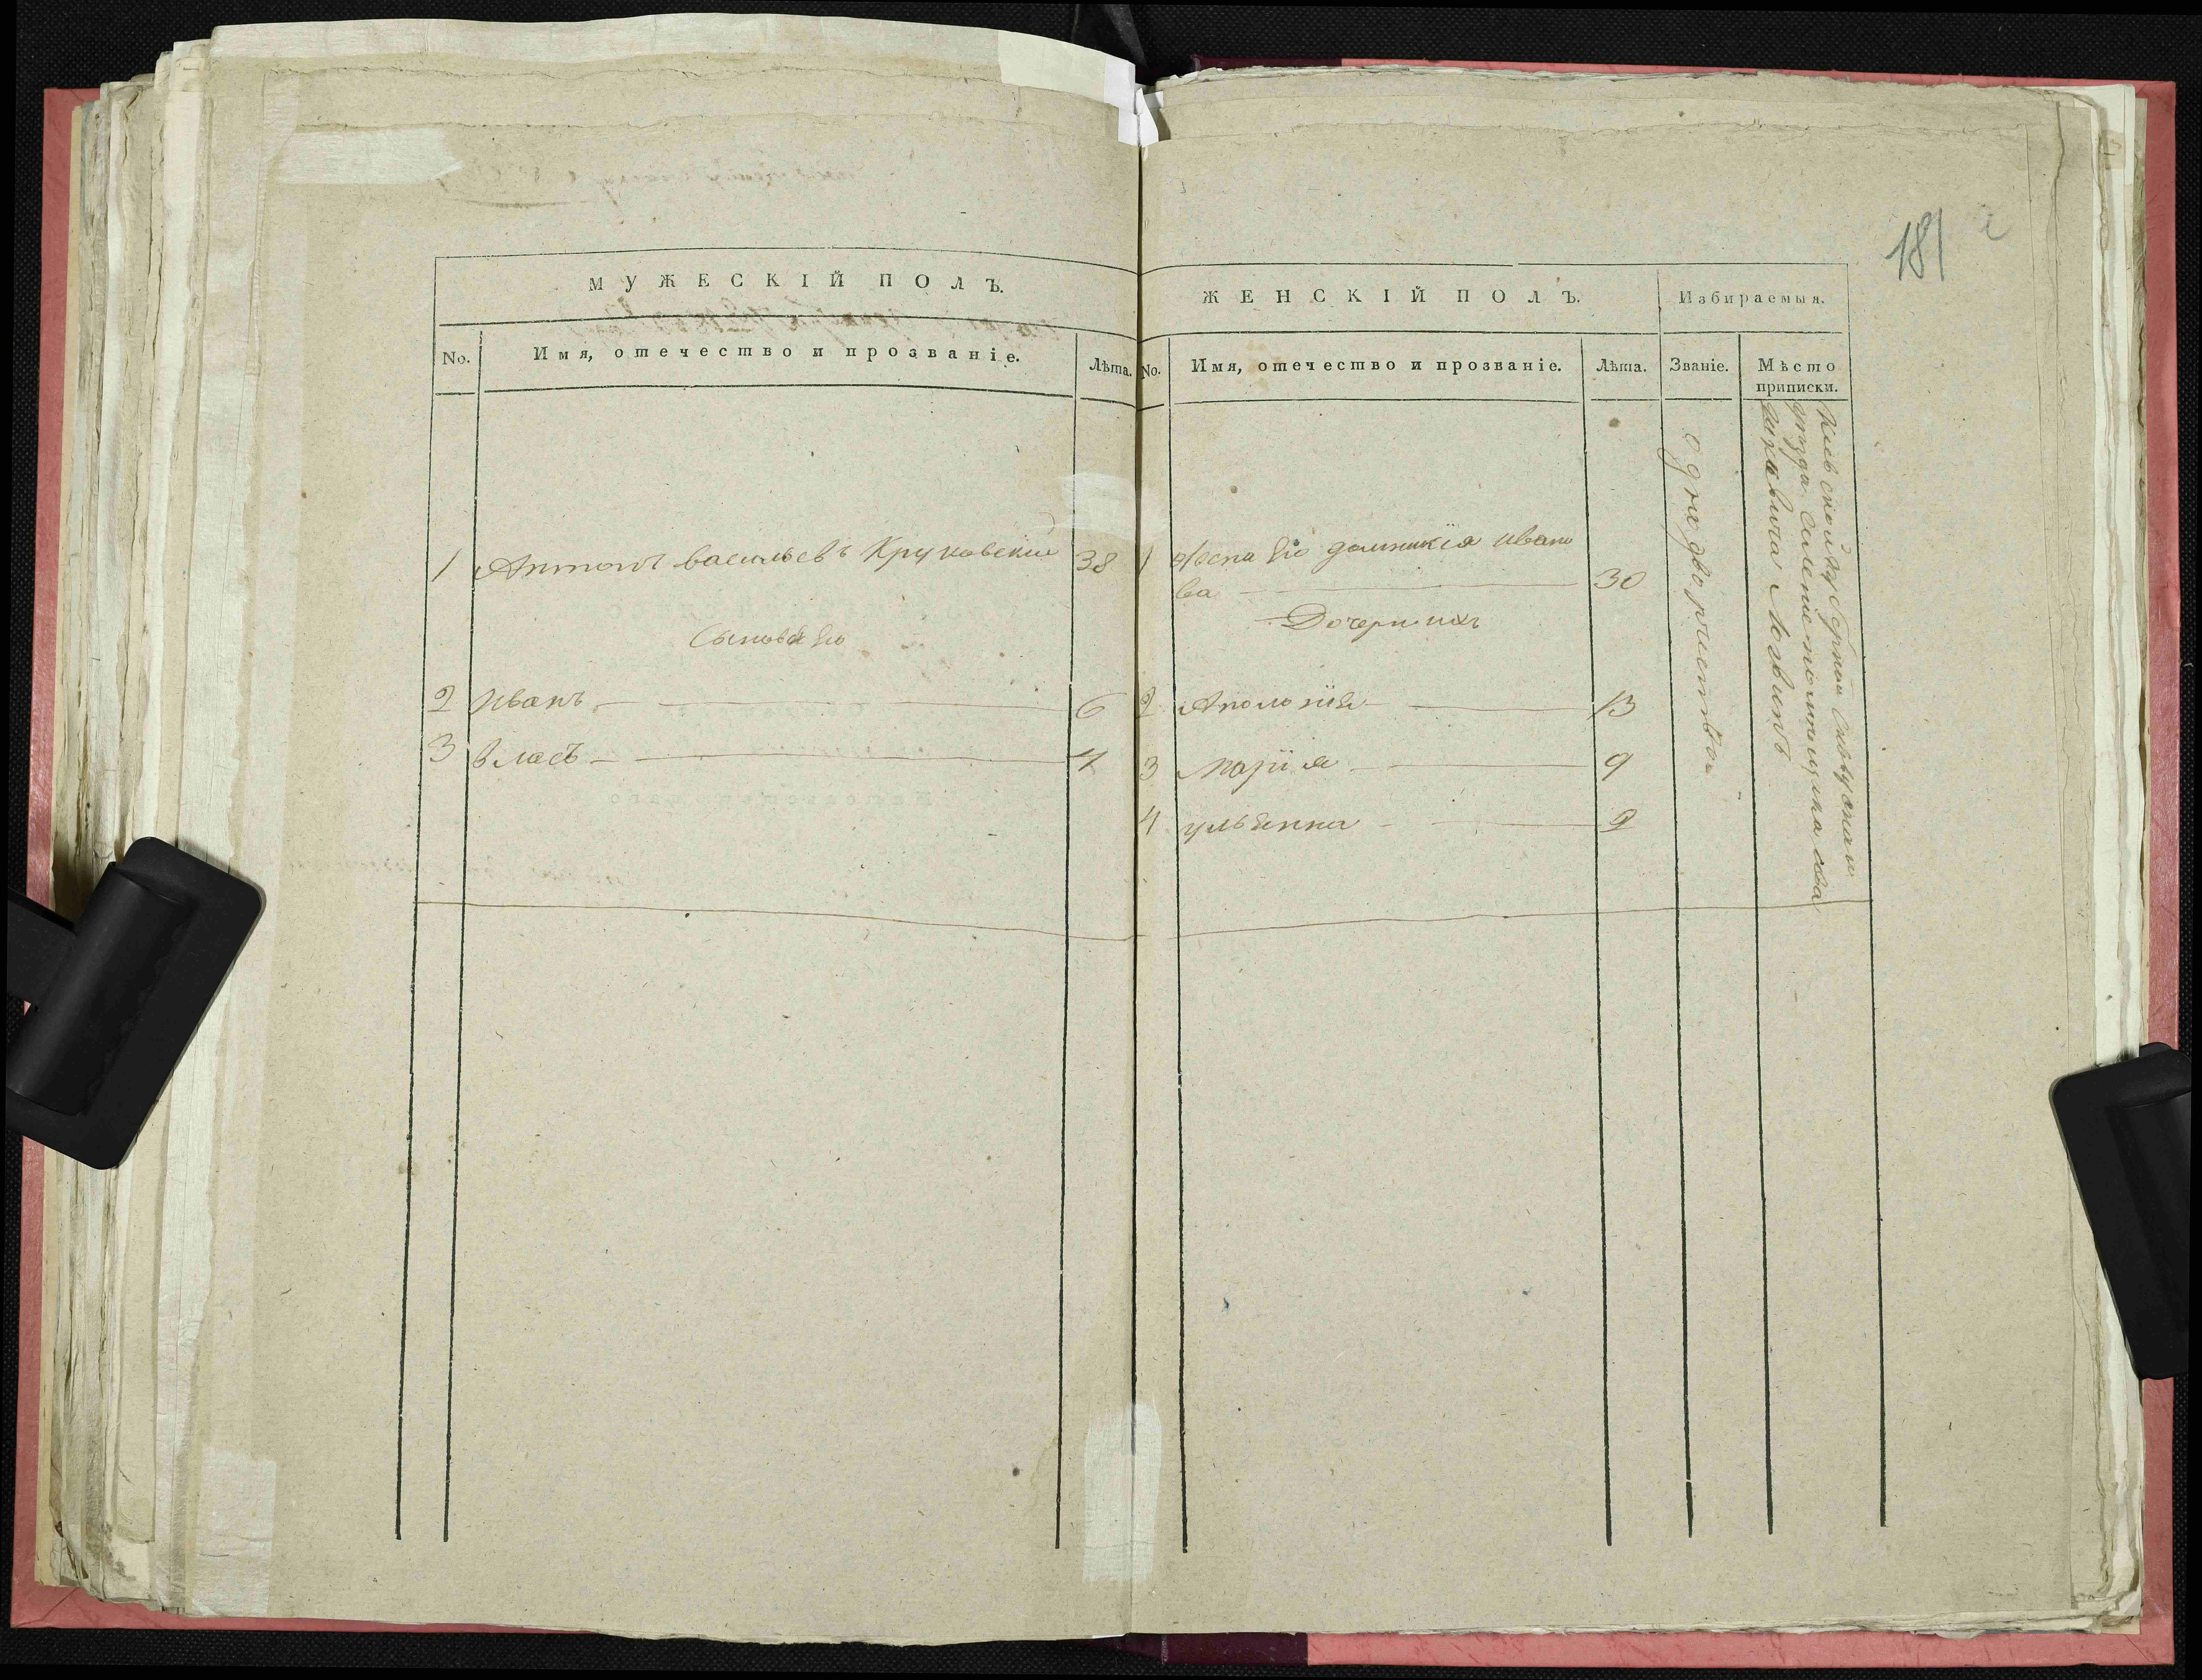 181
МУЖЕСКІЙ ПОЛЪ.
No.
Имя, отечество и прозваніе.
Лѣта.
1 Антонъ васильевъ Круковскій 38
Сыновья Его
2 Иванъ 6
3 Власъ 4
ЖЕНСКІЙ ПОЛЪ.
Избираемыя.
No.
Имя, отечество и прозваніе.
Лѣта.
Званіе.
Мѣсто
приписки.
1 Жена Его домникія Ивано
ва 30
Дочери ихъ
2 Аполонія 13
3 Марія 9
4 ульянна 2
Киевской Губерніи
уезда